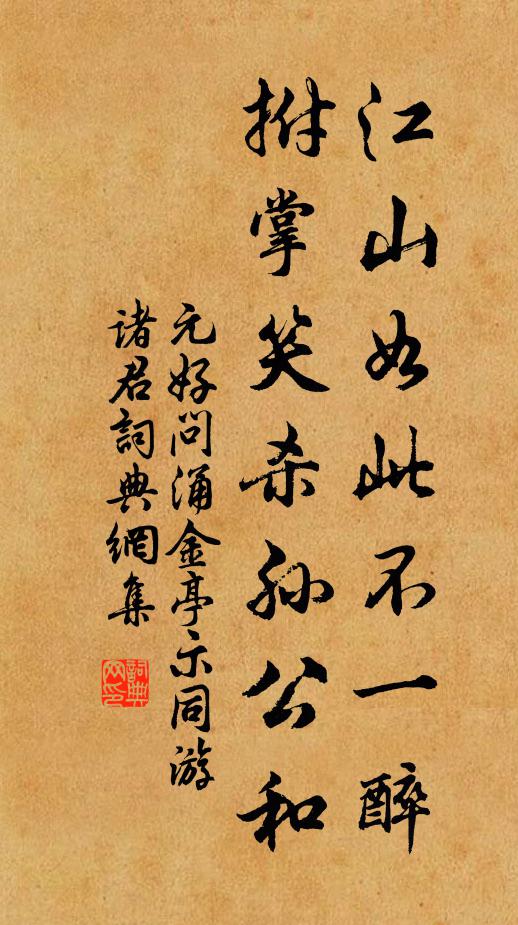 江山如此不一醉
拊掌笑杀孙公和
元好问涌金亭示同游
諸君詞典網集
詞典
网印